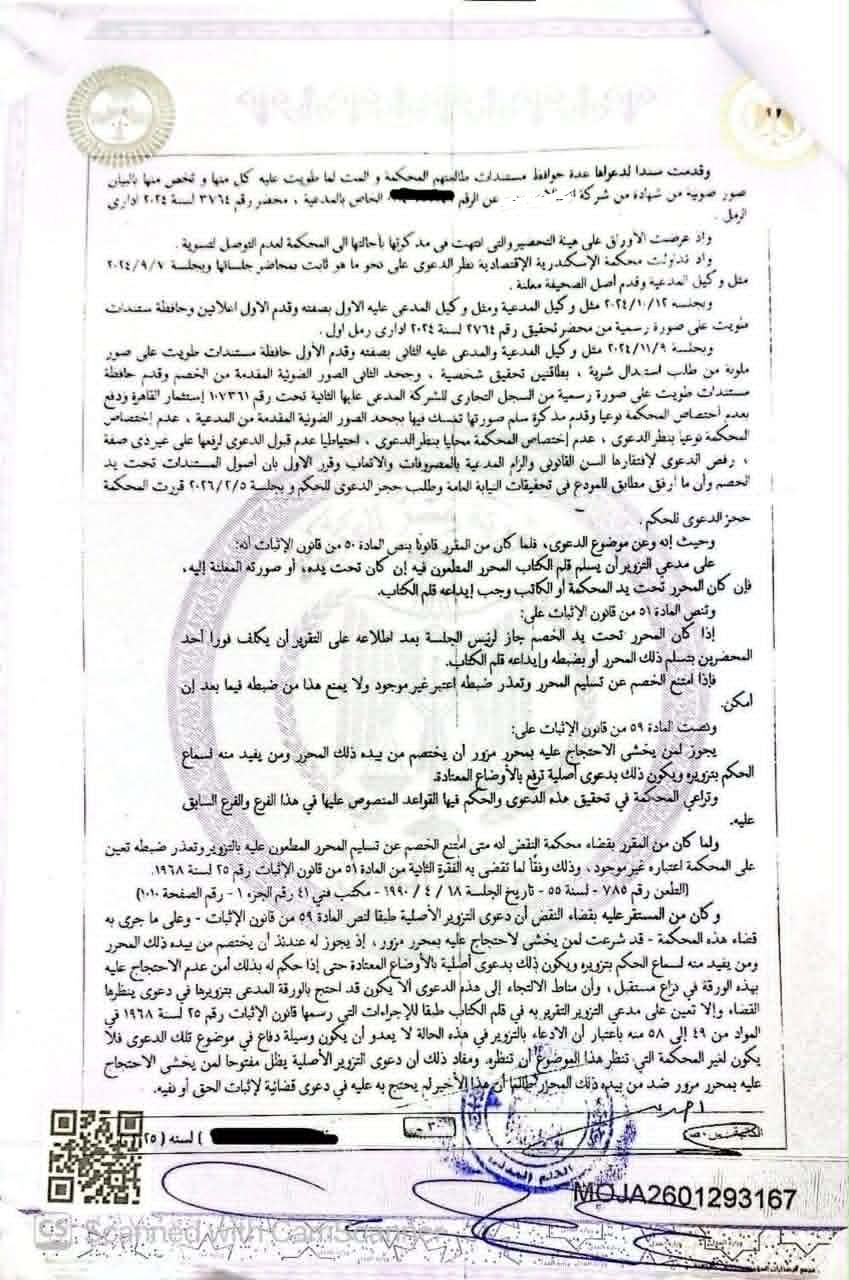 وقدمت سندا لدعواها عدة حوافظ مستندات طالعتهم المحكمة و المت لما طويت عليه كل منها و تخص منها بالبيان
صور ضوئية من شهادة من شركة عن الرقم الخاص بالمدعية ، محضر رقم ٣٧٦٤ لسنة ٢٠٢٤ ادارى
الرمل .
واذ عرضت الأوراق على هيئة التحضير والتى انتهت فى مذكرتها بأحالتها الى المحكمة لعدم التوصل لتسوية .
واذ تداولت محكمة الإسكندرية الإقتصادية نظر الدعوى على نحو ما هو ثابت بمحاضر جلساتها وبجلسة ٢٠٢٤/٩/٧
مثل وكيل المدعية وقدم أصل الصحيفة معلنة .
وبجلسة ٢٠٢٤/١٠/١٢ مثل وكيل المدعية ومثل وكيل المدعى عليه الاول بصفته وقدم الاول اعلانين وحافظة مستندات
طويت على صورة رسمية من محضر تحقيق رقم ٢٧٦٤ لسنة ٢٠٢٤ ادارى رمل اول .
وبجلسة ٢٠٢٤/١١/٩ مثل وكيل المدعية والمدعى عليه الثانى بصفته وقدم الأول حافظة مستندات طويت على صور
ملونة من طلب استبدال شرية ، بطاقتين تحقيق شخصية ، وجحد الثانى الصور الضوئية المقدمة من الخصم وقدم حافظة
مستندات طويت على صورة رسمية من السجل التجارى للشركة المدعى عليها الثانية تحت رقم ١٠٧٣٦١ إستثمار القاهرة ودفع
بعدم أختصاص المحكمة نوعيا وقدم مذكرة سلم صورتها تمسك فيها بجحد الصور الضوئية المقدمة من المدعية ، عدم إختصاص
المحكمة نوعيا بنظر الدعوى ، عدم إختصاص المحكمة محليا بنظر الدعوى ، احتياطيا عدم قبول الدعوى لرفعها على غير ذى صفة
، رفض الدعوى لإفتقارها السن القانونى والزام المدعية بالمصروفات والاتعاب وقرر الاول بان أصول المستندات تحت يد
الخصم وأن ما ارفق مطابق للمودع فى تحقيقات النيابة العامة وطلب حجز الدعوى للحكم و بجلسة ٢٠٢٦/٢/٥ قررت المحكمة
حجز الدعوى للحكم .
وحيث إنه وعن موضوع الدعوى، فلما كان من المقرر قانونا بنص المادة ٥٠ من قانون الإثبات أنه:
على مدعي التزوير أن يسلم قلم الكتاب المحرر المطعون فيه إن كان تحت يده، أو صورته المعلنة إليه،
فإن كان المحرر تحت يد المحكمة أو الكاتب وجب إيداعه قلم الكتاب.
وتنص المادة ٥١ من قانون الإثبات على:
إذا كان المحرر تحت يد الخصم جاز لرئيس الجلسة بعد اطلاعه على التقرير أن يكلف فورا أحد
المحضرين بتسلم ذلك المحرر أو بضبطه وإيداعه قلم الكتاب.
فإذا امتنع الخصم عن تسليم المحرر وتعذر ضبطه اعتبر غير موجود ولا يمنع هذا من ضبطه فيما بعد إن
أمكن.
ونصت المادة ٥٩ من قانون الإثبات على:
يجوز لمن يخشى الاحتجاج عليه بمحرر مزور أن يختصم من بيده ذلك المحرر ومن يفيد منه لسماع
الحكم بتزويره ويكون ذلك بدعوى أصلية ترفع بالأوضاع المعتادة.
وتراعي المحكمة في تحقيق هذه الدعوى والحكم فيها القواعد المنصوص عليها في هذا الفرع والفرع السابق
عليه.
ولما كان من المقرر بقضاء محكمة النقض أنه متى امتنع الخصم عن تسليم المحرر المطعون عليه بالتزوير وتعذر ضبطه تعين
على المحكمة اعتباره غير موجود، وذلك وفقا لما تقضى به الفقرة الثانية من المادة ٥١ من قانون الإثبات رقم ٢٥ لسنة ١٩٦٨.
(الطعن رقم ٧٨٥ - لسنة ٥٥ - تاريخ الجلسة ١٨ / ٤ / ١٩٩٠ - مكتب فني ٤١ رقم الجزء ١ - رقم الصفحة ١٠١٠)
وكان من المستقر عليه بقضاء النقض أن دعوى التزوير الأصلية طبقا لنص المادة ٥٩ من قانون الإثبات - وعلى ما جرى به
قضاء هذه المحكمة - قد شرعت لمن يخشى لاحتجاج عليه بمحرر مزور ، إذ يجوز له عندئذ أن يختصم من بيده ذلك المحرر
ومن يفيد منه لسماع الحكم بتزويره ويكون ذلك بدعوى أصلية بالأوضاع المعتادة حتى إذا حكم له بذلك أمن عدم الاحتجاج عليه
بهذه الورقة في نزاع مستقبل ، وأن مناط الالتجاء إلى هذه الدعوى ألا يكون قد احتج بالورقة المدعى بتزويرها في دعوى ينظرها
القضاء وإلا تعين على مدعي التزوير التقرير به في قلم الكتاب طبقا للإجراءات التي رسمها قانون الإثبات رقم ٢٥ لسنة ١٩٦٨ في
المواد من ٤٩ إلى ٥٨ منه باعتبار أن الادعاء بالتزوير في هذه الحالة لا يعدو أن يكون وسيلة دفاع في موضوع تلك الدعوى فلا
يكون لغير المحكمة التي تنظر هذا الموضوع أن تنظره. ومفاد ذلك أن دعوى التزوير الأصلية يظل مفتوحا لمن يخشى الاحتجاج
عليه بمحرر مزور ضد من بيده ذلك المحرر طالما أن هذا الأخير لم يحتج به عليه في دعوى قضائية لإثبات الحق أو نفيه.
٣ ) لسنه ( ٢٥
القلم المدني
MOJA2601293167
CS Scanned with CamScanner